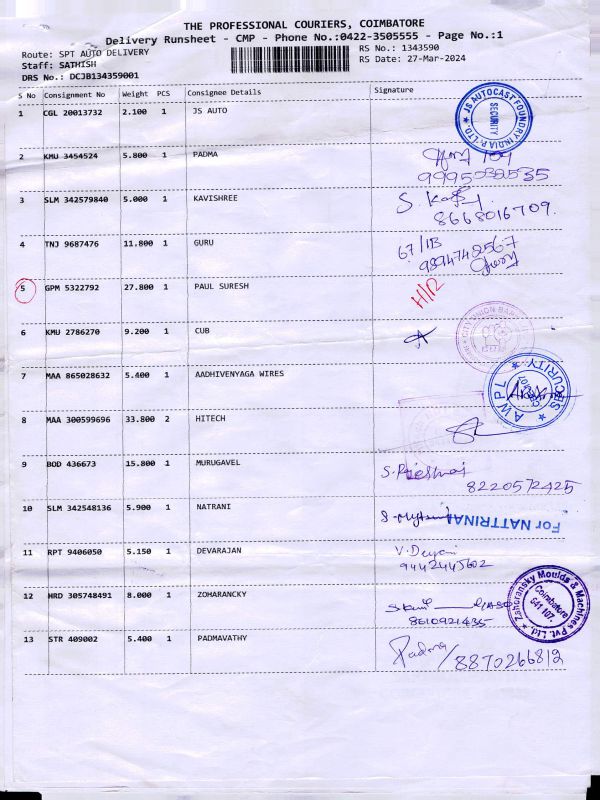 THE PROFESSIONAL COURIERS, COIMBATORE
Delivery Runsheet - CMP - Phone No.:0422-3505555 - Page No.:1
Route: SPT AUTO DELIVERY RS No.: 1343590
Staff: SATHISH RS Date: 27-Mar-2024
DRS No.: DCJB134359001
S No Consignment No Weight PCS Consignee Details Signature
1 CGL 20013732 2.100 1 JS AUTO
JS AUTOCAST FOUNDRY INDIA P. LTD. SECURITY
2 KMU 3454524 5.800 1 PADMA
3 SLM 342579840 5.000 1 KAVISHREE S.
8668016709.
4 TNJ 9687476 11.800 1 GURU 67/1B
5 GPM 5322792 27.800 1 PAUL SURESH H/R
6 KMU 2786270 9.200 1 CUB
7 MAA 865028632 5.400 1 AADHIVENYAGA WIRES
AWPL SECURITY
8 MAA 300599696 33.800 2 HITECH
9 BOD 436673 15.800 1 MURUGAVEL S.
8220572425
10 SLM 342548136 5.900 1 NATRANI For NATTRINAI
11 RPT 9406050 5.150 1 DEVARAJAN V.
9442445602
12 HRD 305748491 8.000 1 ZOHARANCKY
8610921435
Zahoransky Moulds & Machines Pvt. Ltd. Coimbatore 641 107.
13 STR 409002 5.400 1 PADMAVATHY Padma/8870266812